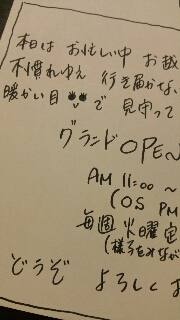 本日は お忙しい中 お越
不慣れゆえ 行き届かな、
暖かい目 で 見守って
グランドOPEN
AM 11:00 〜
(OS PM
毎週 火曜定
(様子をみなが
どうぞ よろしくお